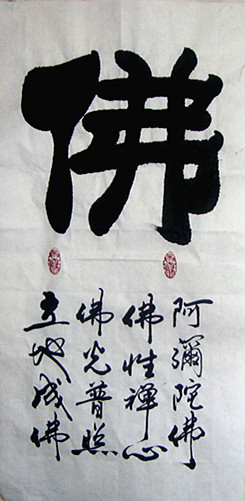 佛
阿彌陀佛
佛性禪心
佛光普照
立地成佛